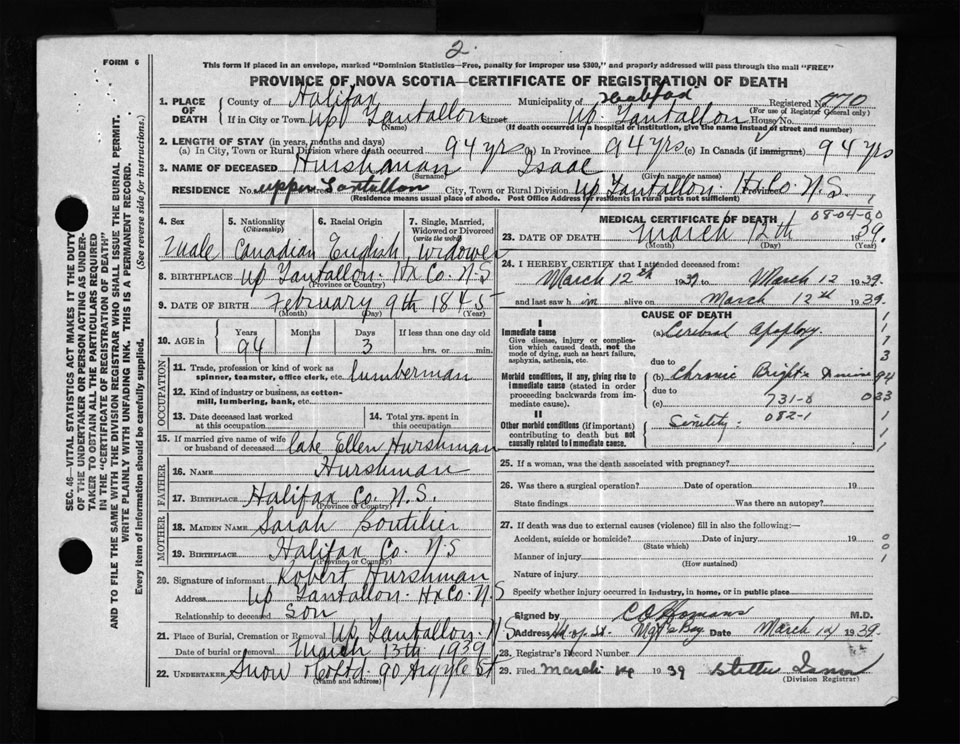 2.
FORM 6
This form if placed in an envelope, marked "Dominion Statistics—Free, penalty for improper use $300," and properly addressed will pass through the mail "FREE"
PROVINCE OF NOVA SCOTIA—CERTIFICATE OF REGISTRATION OF DEATH
1. PLACE OF DEATH County of Halifax Municipality of Halifax Registered No. 770
(For use of Registrar General only)
If in City or Town Up Tantallon Street Up. Tantallon House No.
(Name) (If death occurred in a hospital or institution, give the name instead of street and number)
2. LENGTH OF STAY (in years, months and days)
(a) In City, Town or Rural Division where death occurred 94 yrs (b) In Province 94 yrs (c) In Canada (if immigrant) 94 yrs
3. NAME OF DECEASED Hurshman Isaac
(Surname) (Given name or names)
RESIDENCE No. upper Tantallon Street City, Town or Rural Division Up Tantallon. Hx Co Province N.S.
(Residence means usual place of abode. Post Office Address for residents in rural parts not sufficient)
4. Sex Male
5. Nationality (Citizenship) Canadian
6. Racial Origin English
7. Single, Married, Widowed or Divorced (write the word) Widower
8. BIRTHPLACE Up Tantallon. Hx Co. N.S
(Province or Country)
9. DATE OF BIRTH February 9th 1845
(Month) (Day) (Year)
10. AGE in Years 94 Months 1 Days 3 If less than one day old hrs. or min.
OCCUPATION
11. Trade, profession or kind of work as spinner, teamster, office clerk, etc. lumberman
12. Kind of industry or business, as cotton-mill, lumbering, bank, etc.
13. Date deceased last worked at this occupation
14. Total yrs. spent in this occupation
15. If married give name of wife or husband of deceased Cate Ellen Hurshman
FATHER
16. NAME Hurshman
17. BIRTHPLACE Halifax Co. N.S.
(Province or Country)
MOTHER
18. MAIDEN NAME Sarah Boutilier
19. BIRTHPLACE Halifax Co. N.S
(Province or Country)
20. Signature of informant Robert Hurshman
Address Up Tantallon. Hx Co. N.S
Relationship to deceased Son
21. Place of Burial, Cremation or Removal Up Tantallon. N.S
Date of burial or removal March 13th 1939
22. UNDERTAKER Snow & Co Ltd 90 Argyle St
(Name and address)
MEDICAL CERTIFICATE OF DEATH
08-04-00
23. DATE OF DEATH March 12th 1939.
(Month) (Day) (Year)
24. I HEREBY CERTIFY that I attended deceased from:
March 12th 1939 to March 12 1939
and last saw him alive on March 12th 1939.
CAUSE OF DEATH
I
Immediate cause
Give disease, injury or complication which caused death, not the mode of dying, such as heart failure, asphyxia, asthenia, etc.
(a) Cerebral Apoplexy
due to
Morbid conditions, if any, giving rise to immediate cause (stated in order proceeding backwards from immediate cause).
(b) Chronic Bright's
due to
(c) 731-0
II
Other morbid conditions (if important) contributing to death but not causally related to immediate cause.
Senility. 082-1
1
1
3
94
033
1
1
25. If a woman, was the death associated with pregnancy?
26. Was there a surgical operation? Date of operation 19
State findings Was there an autopsy?
27. If death was due to external causes (violence) fill in also the following:—
Accident, suicide or homicide? Date of injury 19 0
(State which) 0
Manner of injury 1
(How sustained)
Nature of injury
Specify whether injury occurred in industry, in home, or in public place
Signed by C O Homans M.D.
Address Mgt's Bay Date March 14 1939.
28. Registrar's Record Number
29. Filed March 14 1939
(Division Registrar)
SEC. 46—VITAL STATISTICS ACT MAKES IT THE DUTY
OF THE UNDERTAKER OR PERSON ACTING AS UNDER-
TAKER TO OBTAIN ALL THE PARTICULARS REQUIRED
IN THE "CERTIFICATE OF REGISTRATION OF DEATH"
AND TO FILE THE SAME WITH THE DIVISION REGISTRAR WHO SHALL ISSUE THE BURIAL PERMIT.
WRITE PLAINLY WITH UNFADING INK. THIS IS A PERMANENT RECORD.
Every item of information should be carefully supplied. (See reverse side for instructions.)